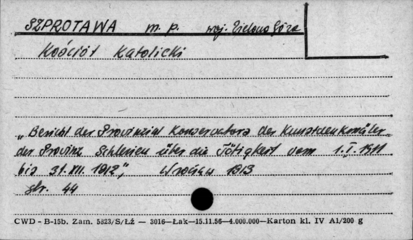 SZPROTAWA m. p. woj. Zielona Góra
Kościół Katolicki
„Bericht der Provinzial Konservators der Kunstdenkmäler
der Provinz Schlesien über die Tätigkeit vom 1.I.1911
bis 31.XII.1912", Wrocław 1913
str. 44
CWD - B-15b. Zam. 5823/S/ŁŻ — 3016—Łak—15.11.56—4.000.000—Karton kl. IV A1/200 g